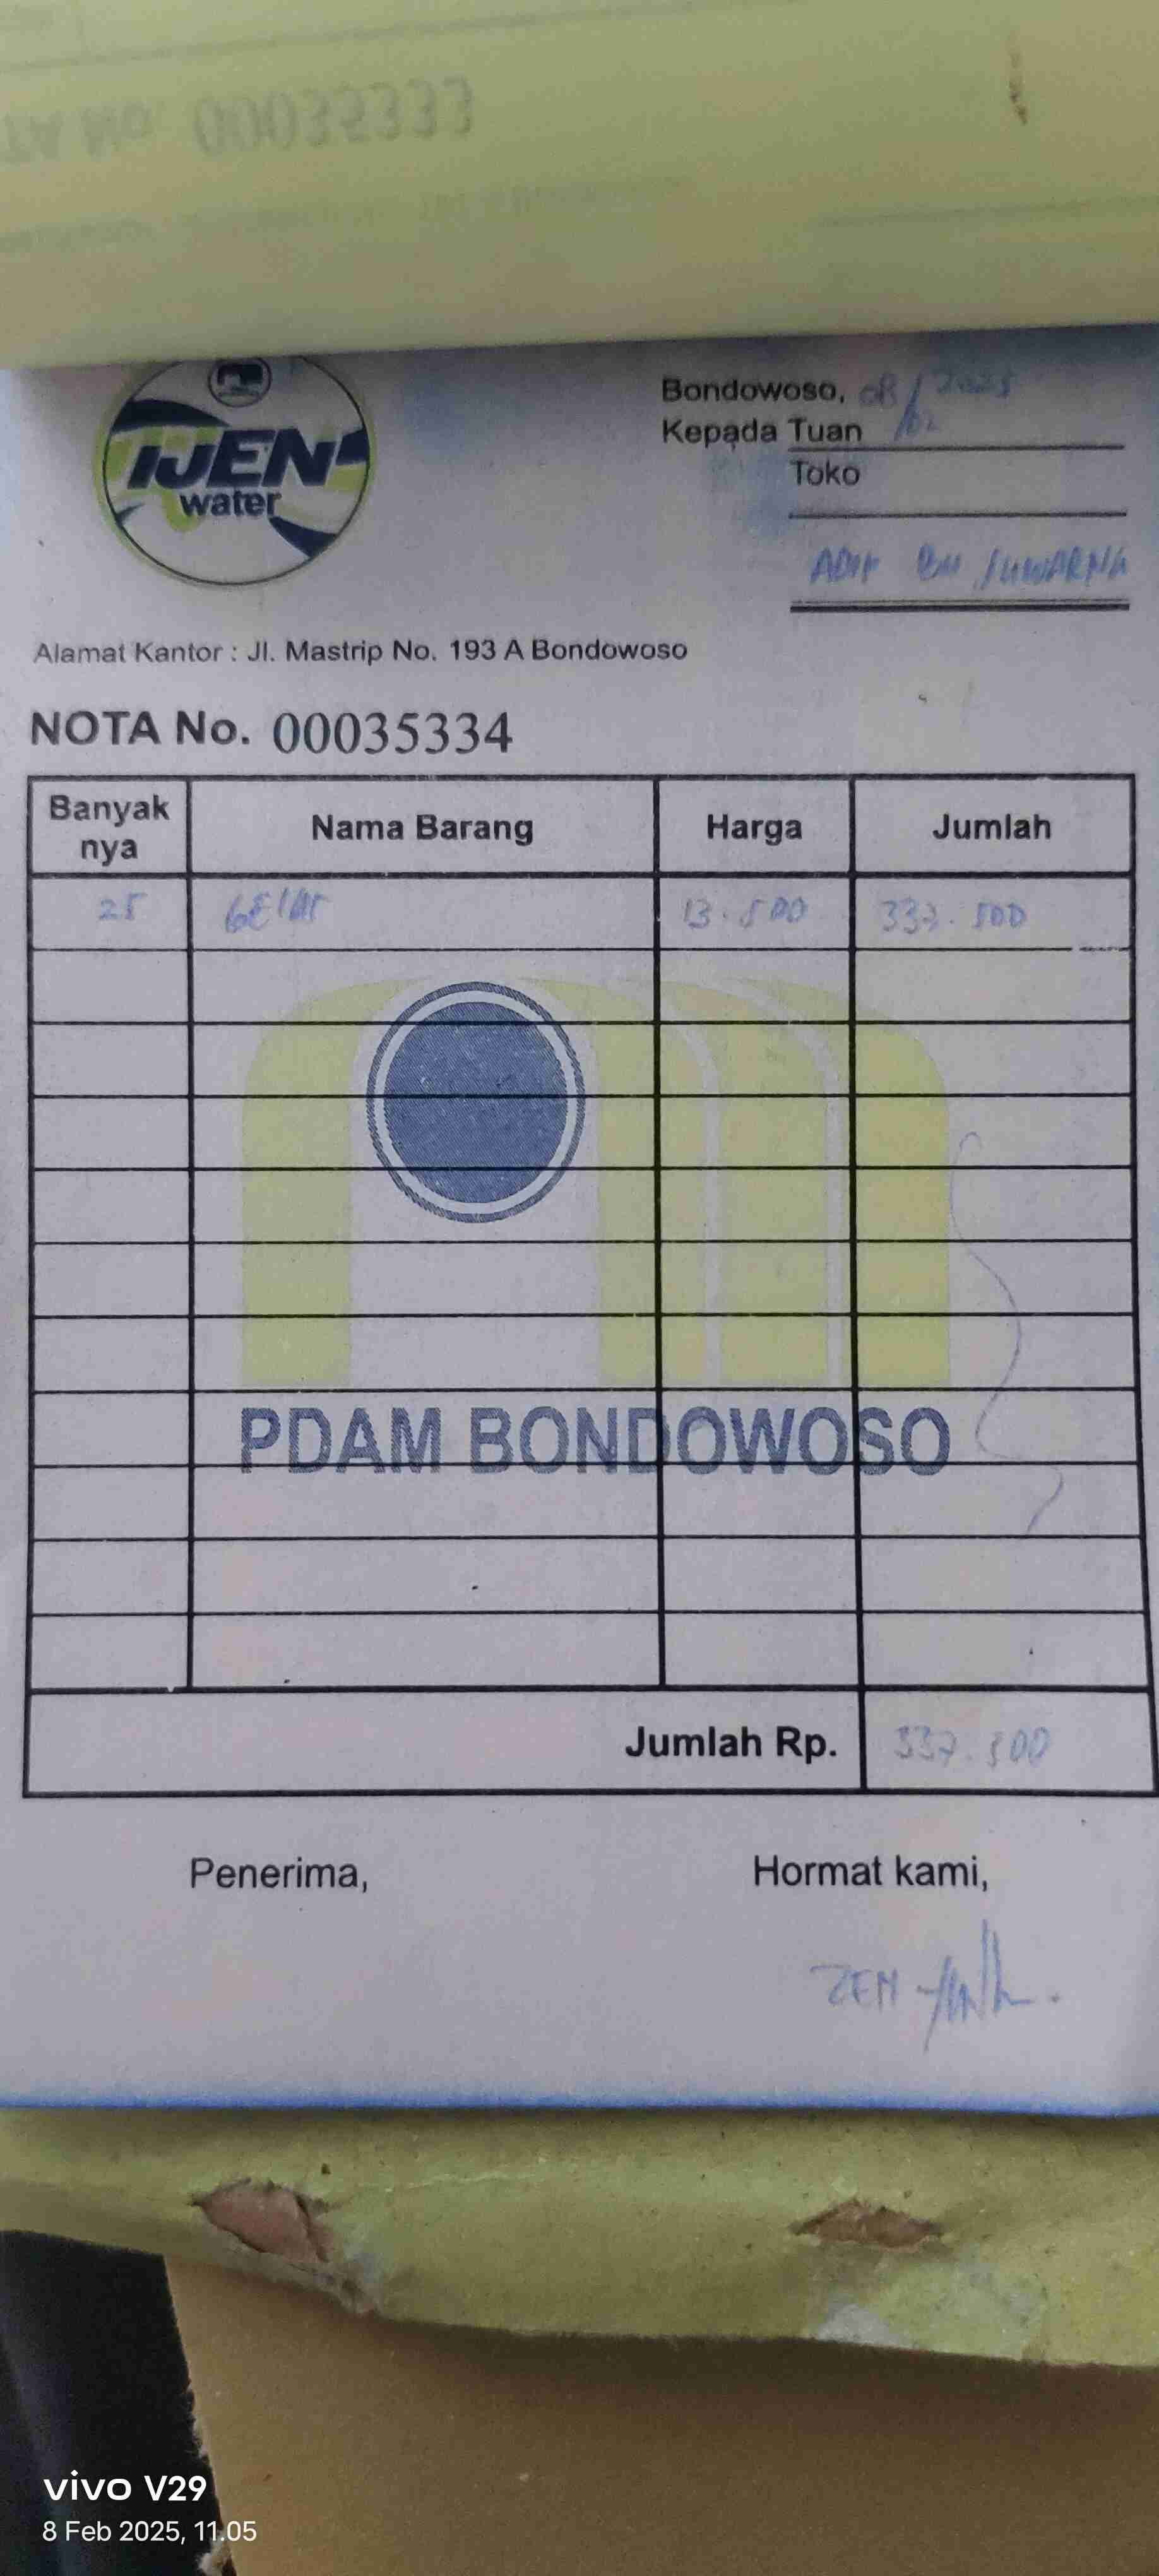 TA No 00035333
IJEN
water
Bondowoso, 08/02 2025
Kepada Tuan
Toko
ADIT BU SUWARNA
Alamat Kantor : Jl. Mastrip No. 193 A Bondowoso
NOTA No. 00035334
Banyak nya Nama Barang Harga Jumlah
25 GELAS 13.500 337.500
PDAM BONDOWOSO
Jumlah Rp. 337.500
Penerima, Hormat kami,
ZEN
vivo V29
8 Feb 2025, 11.05